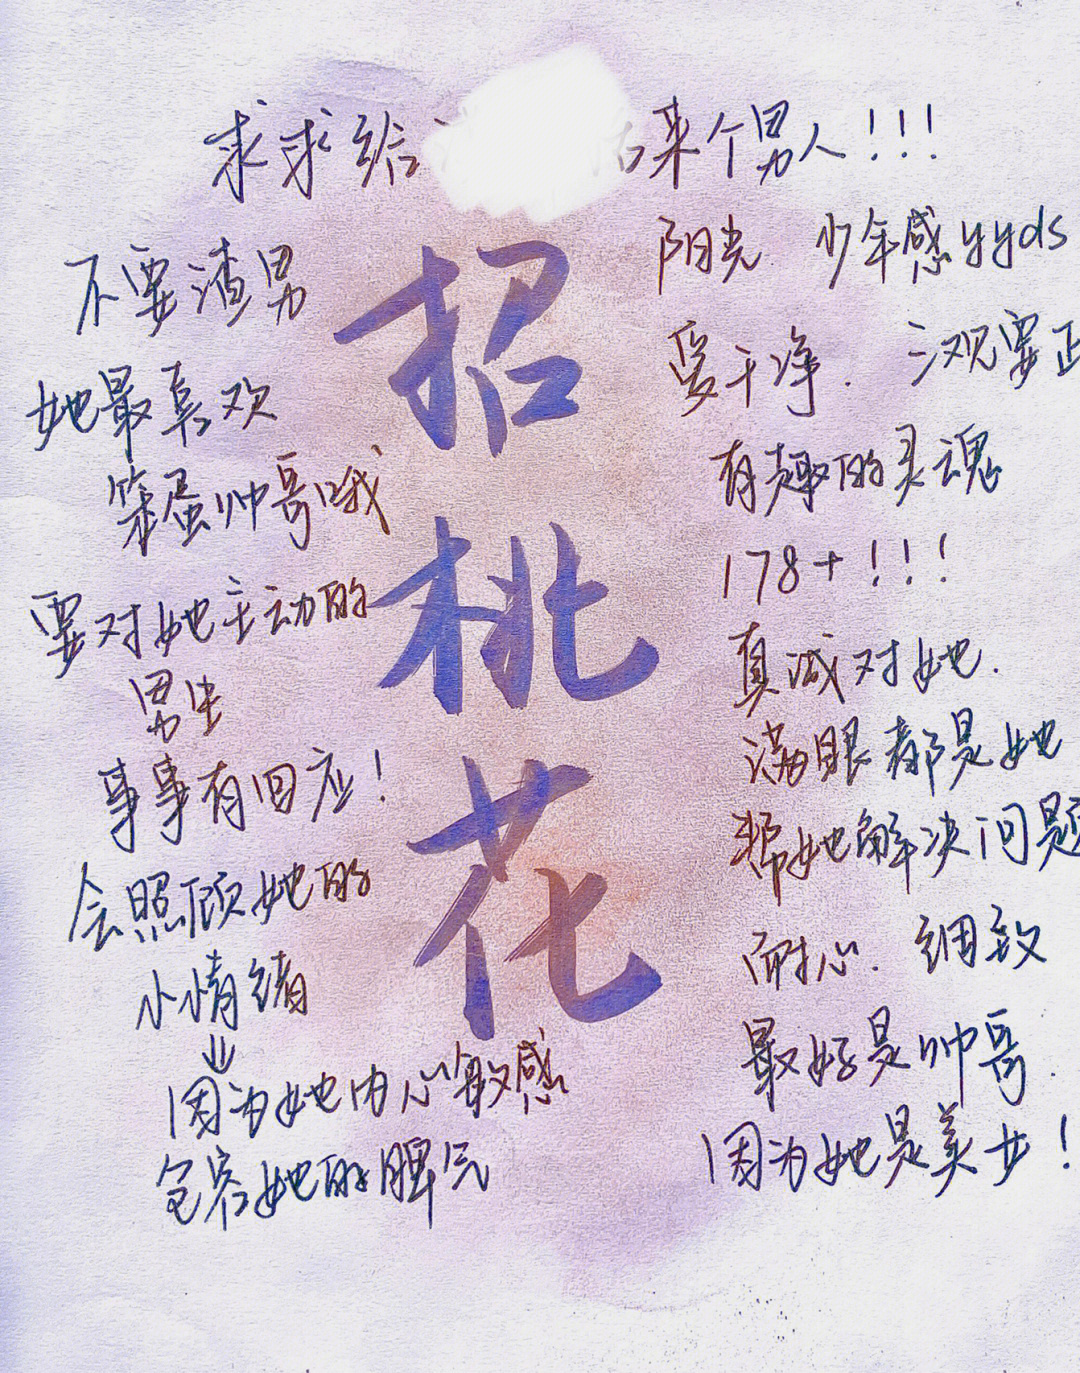 求求给 来个男人!!!
招桃花
不要渣男
她最喜欢
笨蛋帅哥哦
要对她主动的
男生
事事有回应!
会照顾她的
小情绪
因为她内心敏感
包容她的脾气
阳光 少年感yyds
爱干净. 三观要正
有趣的灵魂
178+!!!
真诚对她.
满眼都是她
帮她解决问题
耐心. 细致
最好是帅哥.
因为她是美女!